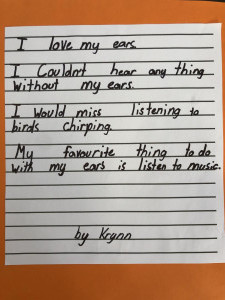 I love my ears.
I Couldn't hear any thing
without my ears.
I would miss listening to
birds chirping.
My favourite thing to do
with my ears is listen to music.
by Krynn